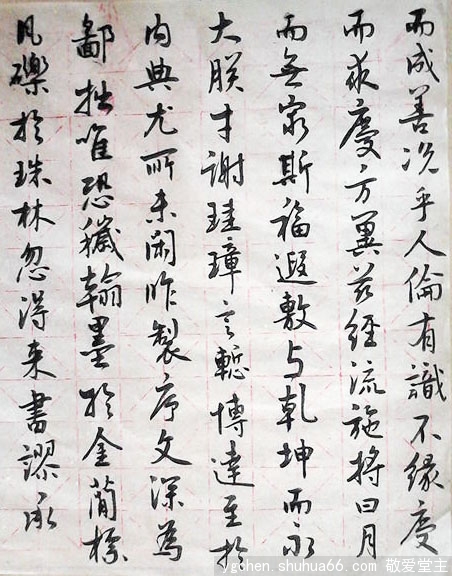 而成善况乎人倫有識不緣慶
而求慶方冀茲經流施將日月
而無窮斯福遐敷与乾坤而永
大朕才謝珪璋言慙博達至於
内典尤所未閑昨製序文深為
鄙拙唯恐穢翰墨於金簡標
瓦礫於珠林忽得来書謬承
ygchen.shuhua66.com 敬爱堂主